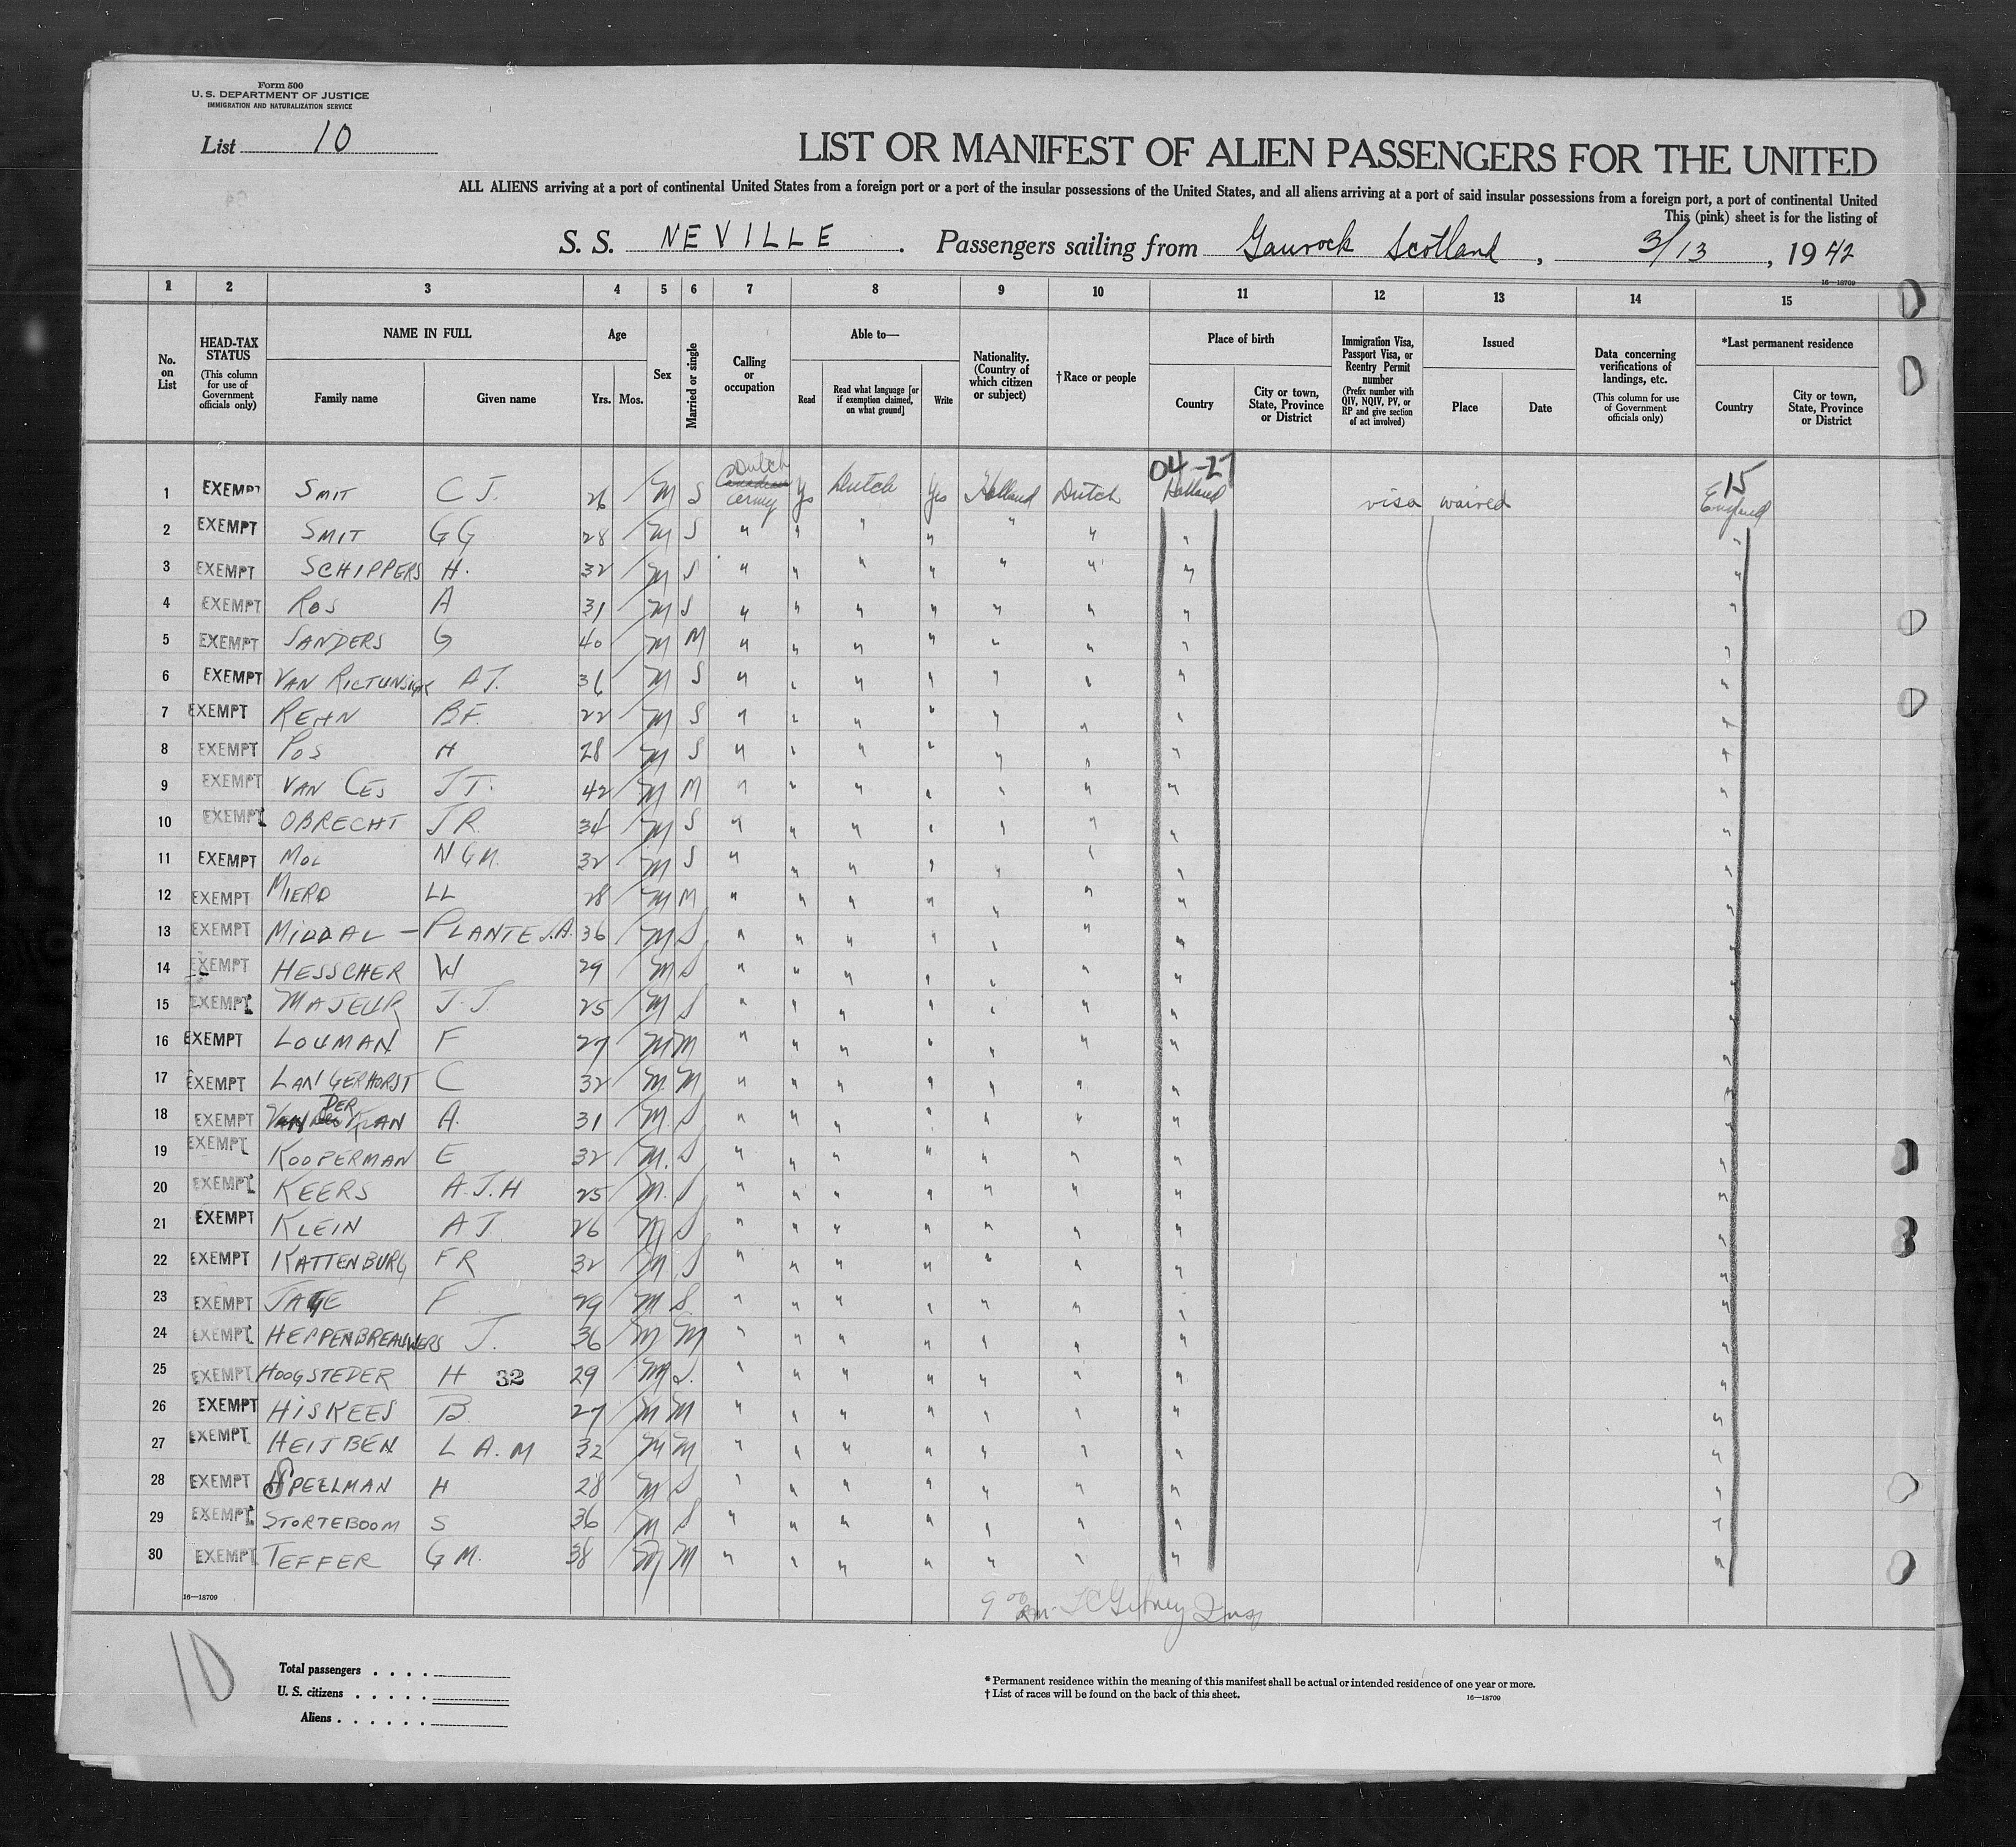 Form 500
U. S. DEPARTMENT OF JUSTICE
IMMIGRATION AND NATURALIZATION SERVICE
List 10
LIST OR MANIFEST OF ALIEN PASSENGERS FOR THE UNITED
ALL ALIENS arriving at a port of continental United States from a foreign port or a port of the insular possessions of the United States, and all aliens arriving at a port of said insular possessions from a foreign port, a port of continental United
This (pink) sheet is for the listing of
S. S. NEVILLE . Passengers sailing from Gaurock Scotland , 3/13 , 1942
16—18709
1 2 3 4 5 6 7 8 9 10 11 12 13 14 15
No. on List
HEAD-TAX STATUS
(This column for use of Government officials only)
NAME IN FULL
Family name Given name
Age
Yrs. Mos.
Sex
Married or single
Calling or occupation
Able to—
Read
Read what language [or if exemption claimed, on what ground]
Write
Nationality. (Country of which citizen or subject)
†Race or people
Place of birth
Country
City or town, State, Province or District
Immigration Visa, Passport Visa, or Reentry Permit number
(Prefix number with QIV, NQIV, PV, or RP and give section of act involved)
Issued
Place Date
Data concerning verifications of landings, etc.
(This column for use of Government officials only)
*Last permanent residence
Country
City or town, State, Province or District
04-27
15
1 EXEMPT SMIT C J. 26 M S Dutch Canadian army Yes Dutch Yes Holland Dutch Holland visa waived England
2 EXEMPT SMIT GG 28 M S " " " " " " " "
3 EXEMPT SCHIPPERS H. 32 M S " " " " " " " "
4 EXEMPT ROS A 31 M S " " " " " " " "
5 EXEMPT SANDERS G 40 M M " " " " " " " "
6 EXEMPT VAN A J. 36 M S " " " " " " " "
7 EXEMPT REHN B F. 22 M S " " " " " " " "
8 EXEMPT POS H 28 M S " " " " " " " "
9 EXEMPT VAN CES J T. 42 M M " " " " " " " "
10 EXEMPT OBRECHT J R. 34 M S " " " " " " " "
11 EXEMPT MOL N G N. 32 M S " " " " " " " "
12 EXEMPT MIERD LL 28 M M " " " " " " " "
13 EXEMPT MIDDAL - PLANTE J.A. 36 M S " " " " " " " "
14 EXEMPT HESSCHER W 29 M S " " " " " " " "
15 EXEMPT MAJEUR J. J. 25 M S " " " " " " " "
16 EXEMPT LOUMAN F 27 M M " " " " " " " "
17 EXEMPT LANGERHORST C 32 M M " " " " " " " "
18 EXEMPT VAN DER KLAN A. 31 M S " " " " " " " "
19 EXEMPT KOOPERMAN E 32 M. S " " " " " " " "
20 EXEMPT KEERS A.J.H 25 M. S " " " " " " " "
21 EXEMPT KLEIN A J. 26 M S " " " " " " " "
22 EXEMPT KATTENBURG F R 32 M S " " " " " " " "
23 EXEMPT F 29 M S " " " " " " " "
24 EXEMPT HEPPENBREAUWERS J. 36 M M " " " " " " " "
25 EXEMPT HOOGSTEDER H 32 29 M S. " " " " " " " "
26 EXEMPT HISKEES B. 27 M M " " " " " " " "
27 EXEMPT HEIJBEN L A. M 32 M M " " " " " " " "
28 EXEMPT SPEELMAN H 28 M S " " " " " " " "
29 EXEMPT STORTEBOOM S 36 M S " " " " " " " "
30 EXEMPT TEFFER G M. 38 M M " " " " " " " "
16—18709
9 00 am
10
Total passengers . . . .
U. S. citizens . . . . .
Aliens . . . . . .
* Permanent residence within the meaning of this manifest shall be actual or intended residence of one year or more.
† List of races will be found on the back of this sheet.
16—18709